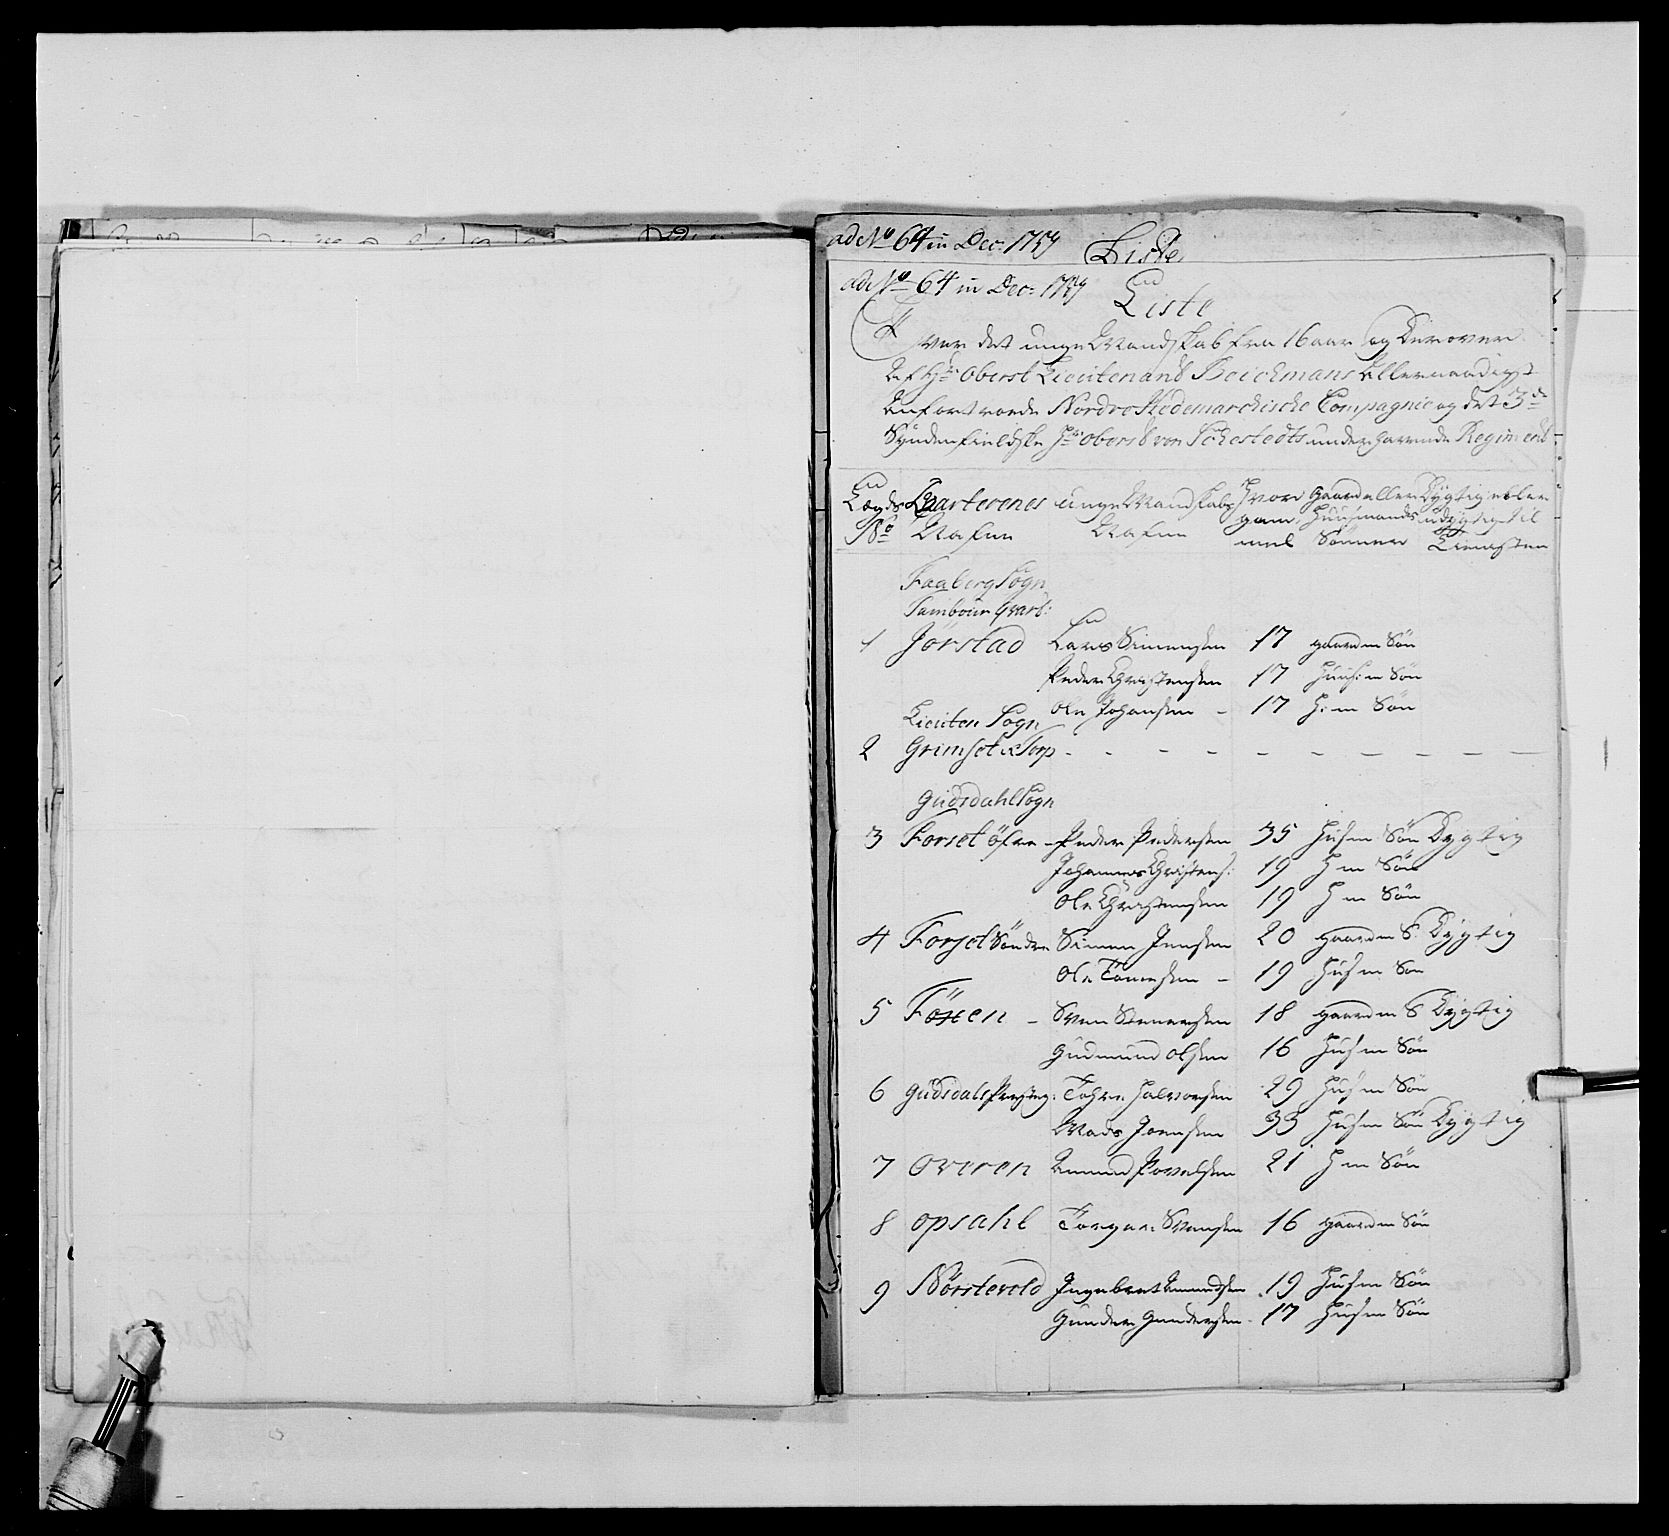 ad No 64 in Dec: 1754 Liste
ad No 64 in Dec: 1754
Liste
Over det unge Mandskab fra 16 aar og derover
Af Hr Oberst Lieutenant Beichmans Allernaadigst
Anfortroede Nordre Hedemarchische Compagnie og det 3de
Syndenfieldske Hr Oberst von Sehestedts underhavende Regiment
Lægds Qvarterenes unge Mandskabs Hvor gaard eller Dygtig eller
No Nafne Nafne gam- Huusmands udygtig til
mel Sønner Tienesten
Faaberg Sogn
Tambour Qvart:
1 Jørstad Lars Simensen 17 gaardm Søn
Peder Christensen 17 Huus:m Søn
Ole Johansen - 17 H:m Søn
Lieuten Sogn
2 Grimset & Torp - - - - - - - - -
Gudsdahl Sogn
3 Forset Øfre - Peder Pedersen 35 Husm Søn Dygtig
Johannes Christens: 19 H m Søn
Ole Christensen 19 H m Søn
4 Forset Søndre Simen Jensen 20 gaardm S. Dygtig
Ole Tommesen - 19 Husm Søn
5 - Sven Steenersen 18 gaardm S Dygtig
Gudmund Olsen 16 Husm Søn
6 Gudsdals Præsteg: Tosten Halvorsen 29 Husm Søn
Mads Joensen 33 Husm Søn Dygtig
7 Overen Amund Povelsen 21 H m Søn
8 Opsahl Torger Svensen 16 gaardm Søn
9 Nørstevold Ingebret Amundsen 19 Husm Søn
Gunder Gundersen - 17 Husm Søn